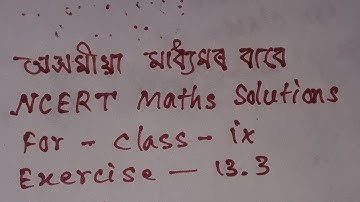 অসমীয়া মাধ্যমৰ বাবে
NCERT Maths Solutions
For - class - ix
Exercise — 13.3